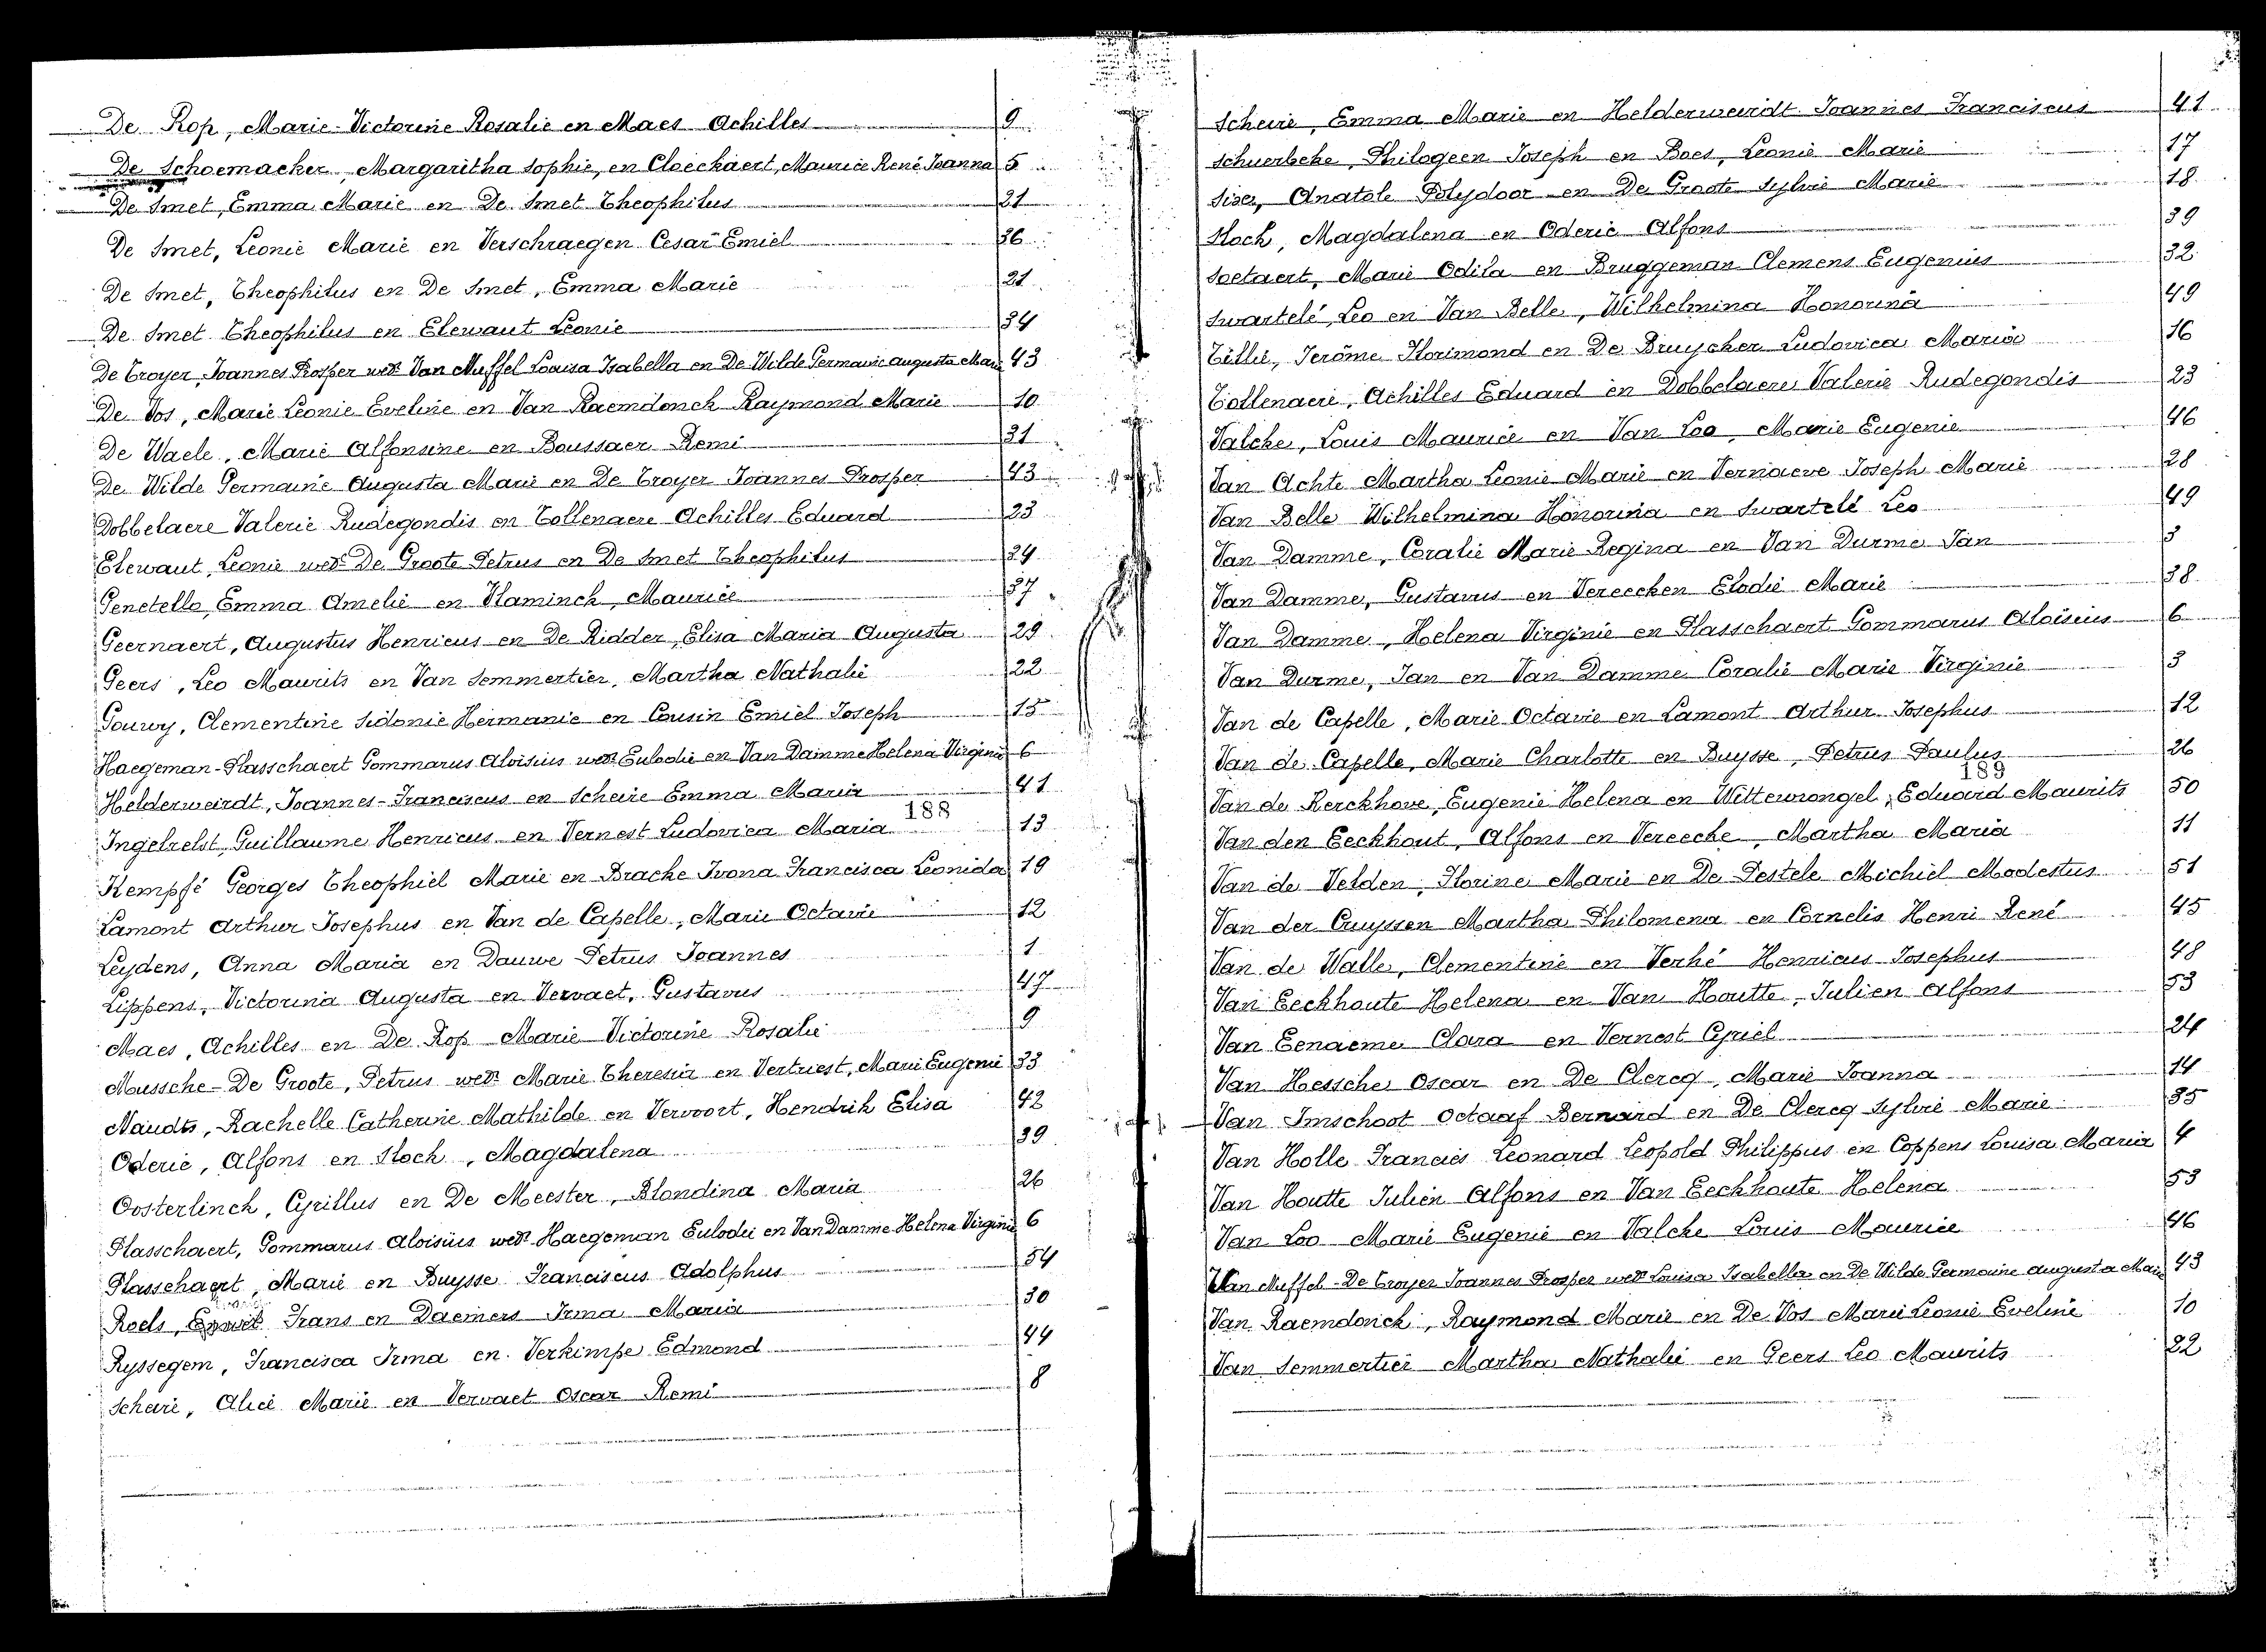 De Rop, Marie-Victorine Rosalie en Maes Achilles 9
De Schoemacker, Margaritha Sophie, en Cloeckaert, Maurice René Joanna 5
De Smet, Emma Marie en De Smet Theophilus 21
De Smet, Leonie Marie en Verschraegen Cesar Emiel 36
De Smet, Theophilus en De Smet, Emma Marie 21
De Smet Theophilus en Elewaut Leonie 34
De Troyer, Joannes Prosper wedr Van Nuffel Louisa Isabella en De Wilde Germaine Augusta Marie 43
De Vos, Marie Leonie Eveline en Van Raemdonck Raymond Marie 10
De Waele, Marie Alfonsine en Boussaer Remi 31
De Wilde Germaine Augusta Marie en De Troyer Joannes Prosper 43
Dobbelaere Valerie Rudegondis en Tollenaere Achilles Eduard 23
Elewaut, Leonie wede De Groote Petrus en De Smet Theophilus 34
Genetello, Emma Amelie en Vlaminck, Maurice 37
Geernaert, Augustus Henricus en De Ridder, Elisa Maria Augusta 29
Geers, Leo Maurits en Van Semmertier, Martha Nathalie 22
Gouwy, Clementine Sidonie Hermanie en Cousin Emiel Joseph 15
Haegeman-Plasschaert Gommarus Aloisius wedr Eulodie en Van Damme Helena Virginie 6
Helderweirdt, Joannes-Franciscus en Scheire Emma Maria 41
188
Ingelrelst, Guillaume Henricus en Vernest Ludovica Maria 13
Kempfé Georges Theophiel Marie en Bracke Ivona Francisca Leonida 19
Lamont Arthur Josephus en Van de Capelle, Marie Octavie 12
Leydens, Anna Maria en Dauwe Petrus Joannes 1
Lippens, Victorina Augusta en Vervaet, Gustavus 47
Maes, Achilles en De Rop Marie Victorine Rosalie 9
Mussche-De Groote, Petrus wedr Marie Theresia en Vertriest, Marie Eugenie 33
Naudts, Rachelle Catherine Mathilde en Vervoort, Hendrik Elisa 42
Oderie, Alfons en Slock, Magdalena 39
Oosterlinck, Cyrillus en De Meester, Blondina Maria 26
Plasschaert, Gommarus Aloisius wedr Haegeman Eulodie en Van Damme Helena Virginie 6
Plasschaert, Marie en Buysse Franciscus Adolphus 54
Roels, Frans en Daemers Irma Maria 30
Ryssegem, Francisca Irma en Verkimpe Edmond 44
Scheire, Alice Marie en Vervaet Oscar Remi 8
Scheire, Emma Marie en Helderweirdt Joannes Franciscus 41
Schuerbeke, Philogeen Joseph en Boes, Leonie Marie 17
Siser, Anatole Polydoor en De Groote Sylvie Marie 18
Slock, Magdalena en Oderie Alfons 39
Soetaert, Marie Odila en Bruggeman Clemens Eugenius 32
Swartelé, Leo en Van Belle, Wilhelmina Honorina 49
Tillie, Jerôme Florimond en De Bruycker Ludovica Maria 16
Tollenaere, Achilles Eduard en Dobbelaere Valerie Rudegondis 23
Valcke, Louis Maurice en Van Loo, Marie Eugenie 46
Van Achte Martha Leonie Marie en Vernaeve Joseph Marie 28
Van Belle Wilhelmina Honorina en Swartelé Leo 49
Van Damme, Coralie Marie Regina en Van Durme Jan 3
Van Damme, Gustavus en Vereecken Elodie Marie 38
Van Damme, Helena Virginie en Plasschaert Gommarus Aloisius 6
Van Durme, Jan en Van Damme Coralie Marie Virginie 3
Van de Capelle, Marie Octavie en Lamont Arthur Josephus 12
Van de Capelle, Marie Charlotte en Buysse, Petrus Paulus 26
189
Van de Kerckhove, Eugenie Helena en Wittewrongel, Eduard Maurits 50
Van den Eeckhout, Alfons en Vereecke, Martha Maria 11
Van de Velden, Florine Marie en De Pestele Michiel Modestus 51
Van der Cruyssen Martha Philomena en Cornelis Henri René 45
Van de Walle, Clementine en Verhé Henricus Josephus 48
Van Eeckhoute Helena en Van Houtte, Julien Alfons 53
Van Eenaeme Clara en Vernest Cyriel 24
Van Hessche Oscar en De Clercq, Marie Joanna 14
Van Imschoot Octaaf Bernard en De Clercq Sylvie Marie 35
Van Holle Francies Leonard Leopold Philippus en Coppens Louisa Maria 4
Van Houtte Julien Alfons en Van Eeckhoute Helena 53
Van Loo Marie Eugenie en Valcke Louis Maurice 46
Van Nuffel-De Troyer Joannes Prosper wedr Louisa Isabella en De Wilde Germaine Augusta Marie 43
Van Raemdonck, Raymond Marie en De Vos Marie Leonie Eveline 10
Van Semmertier Martha Nathalie en Geers Leo Maurits 22